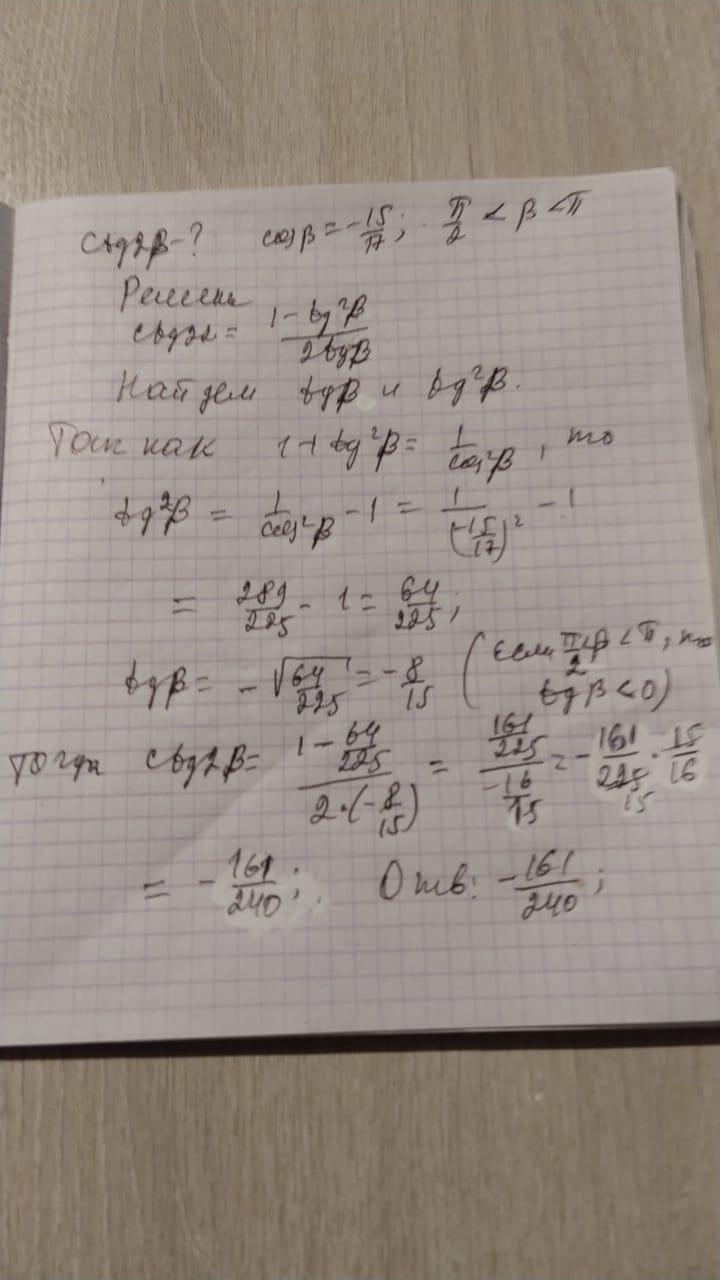 ctg2β-? cosβ = -15/17; π/2 < β < π
Решение
ctg2α = (1 - tg²β)/(2tgβ)
Найдем tgβ и tg²β.
Так как 1 + tg²β = 1/cos²β, то
tg²β = 1/cos²β - 1 = 1/(-15/17)² - 1
= 289/225 - 1 = 64/225;
tgβ = -√(64/225) = -8/15 (Если π/2 < β < π, то
tgβ < 0)
Тогда ctg2β = (1 - 64/225)/(2·(-8/15)) = (161/225)/(-16/15) = -161/225 · 15/16
15
= -161/240; Отв: -161/240;